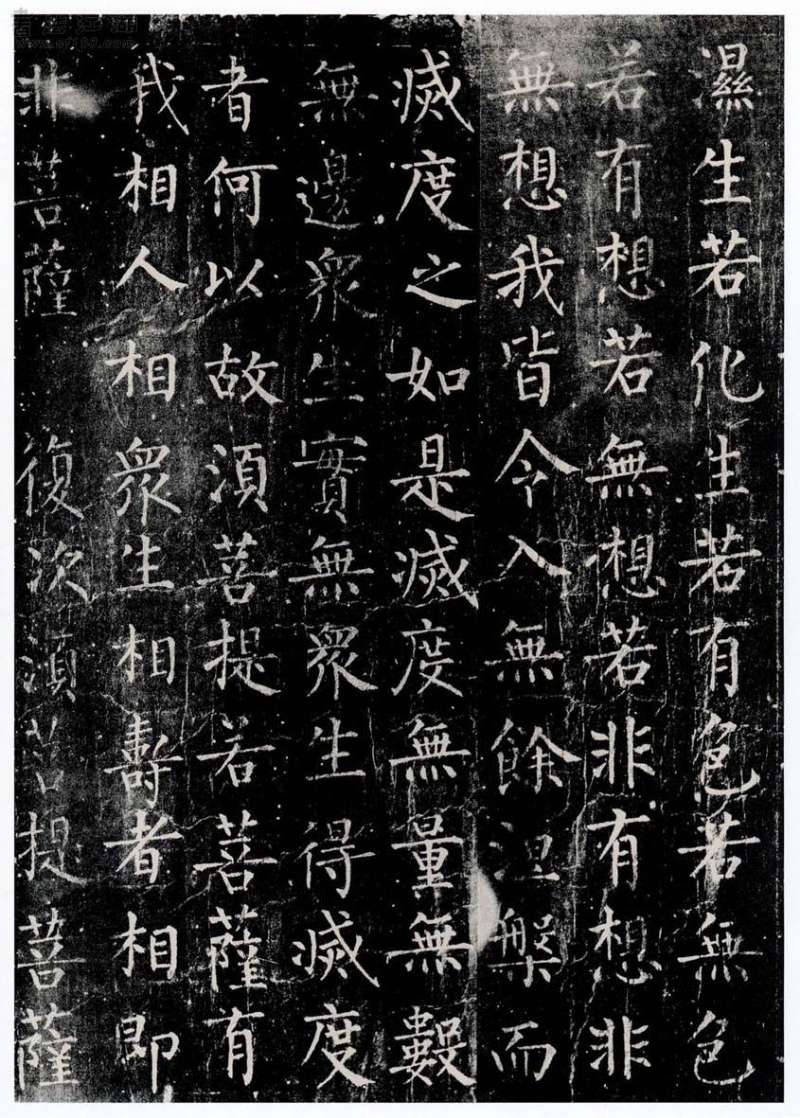 濕生若化生若有色若無色
若有想若無想若非有想非
無想我皆令入無餘涅槃而
滅度之如是滅度無量無數
無邊眾生實無眾生得滅度
者何以故須菩提若菩薩有
我相人相眾生相壽者相即
非菩薩 復次須菩提菩薩